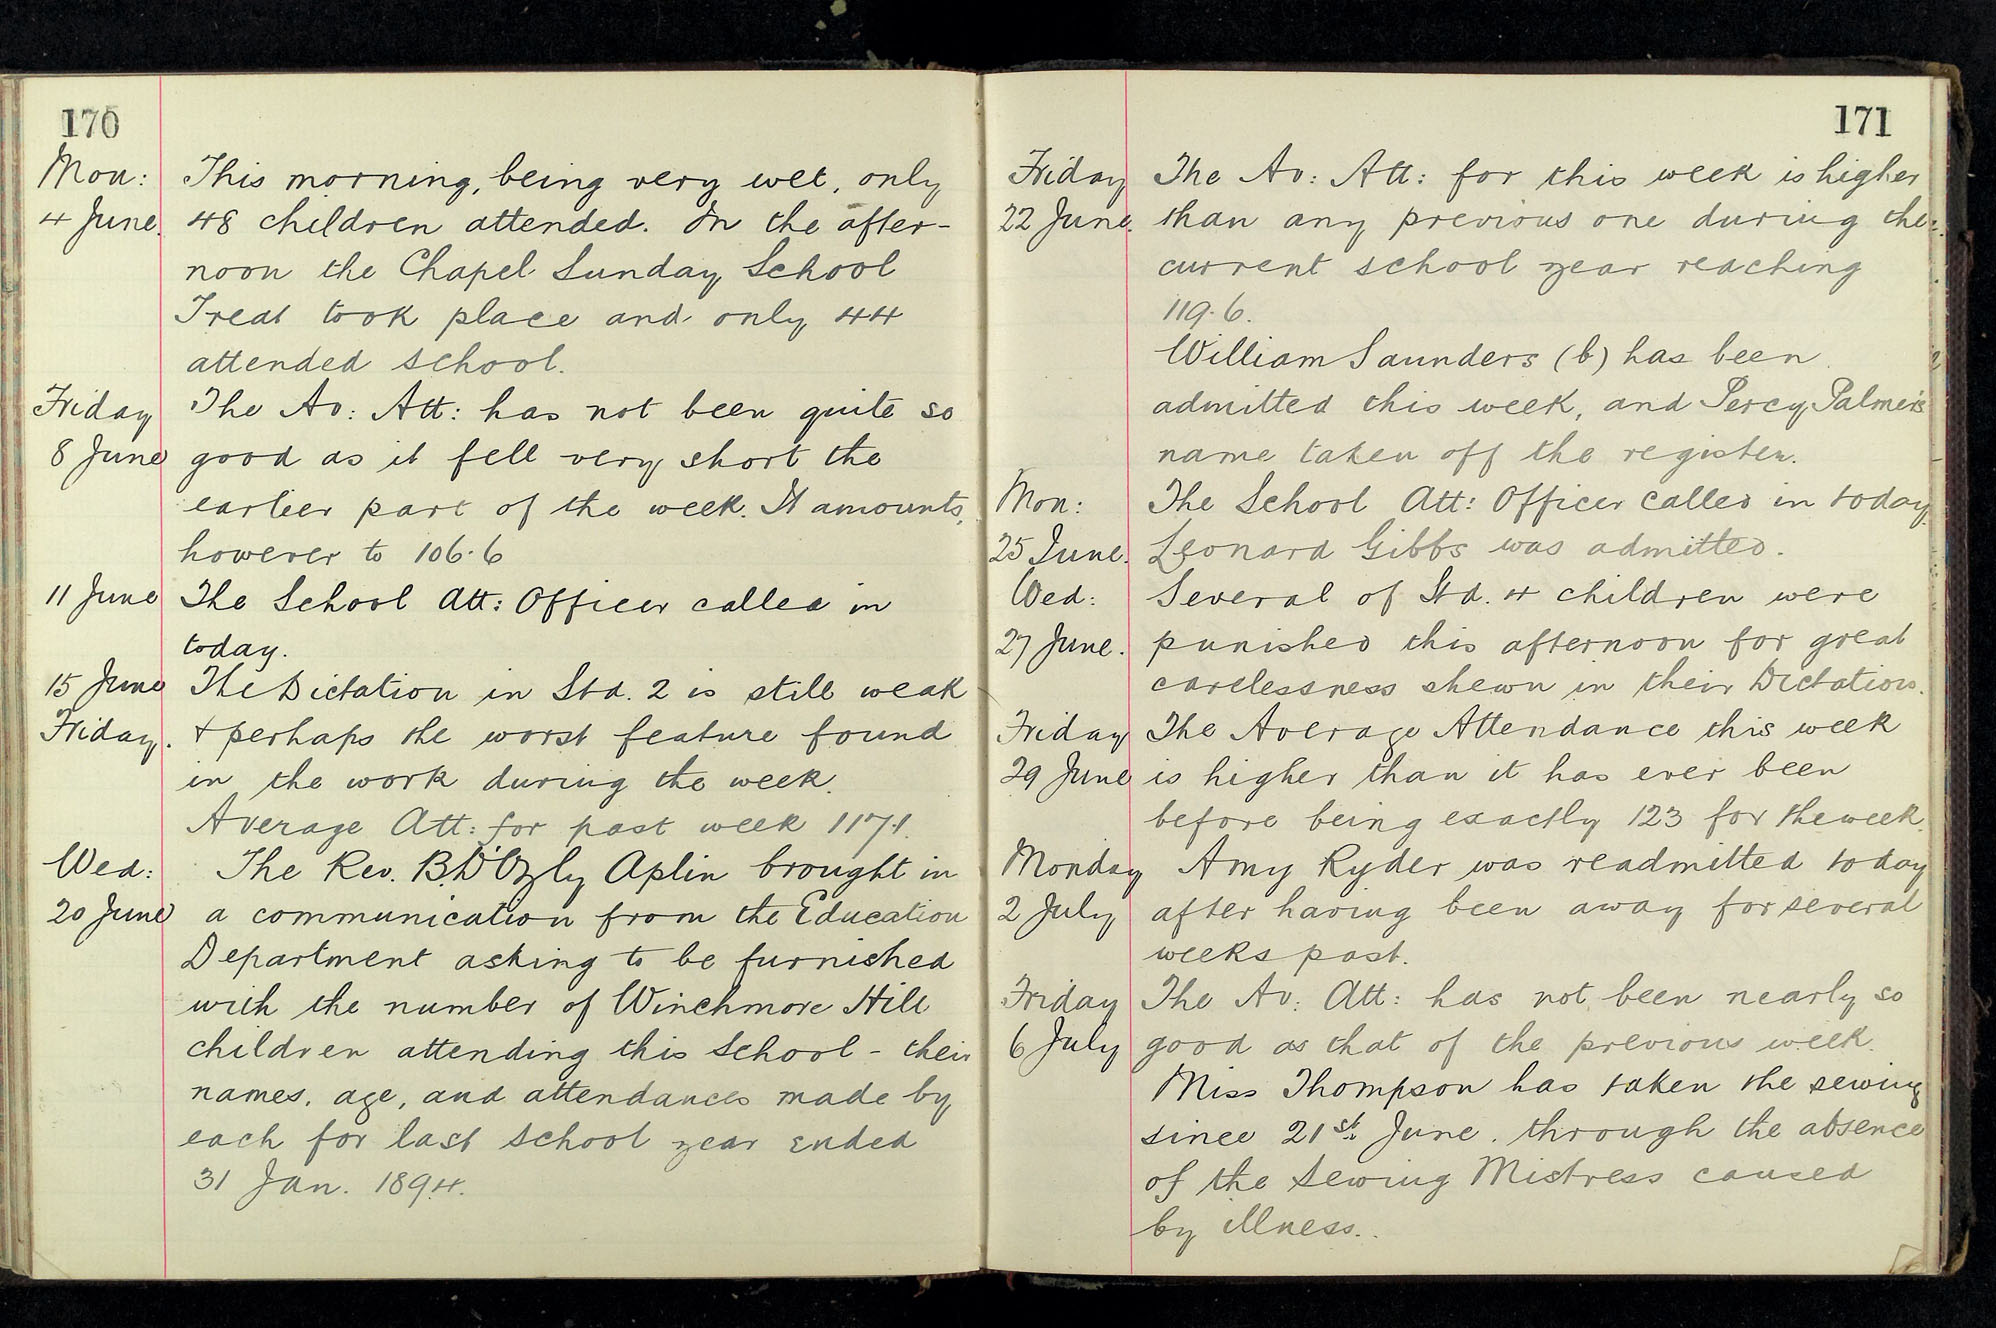 170
Mon: This morning, being very wet, only
4 June. 48 children attended. In the after-
noon the Chapel Sunday School
Treat took place and only 44
attended school.
Friday The Av: Att: has not been quite so
8 June good as it fell very short the
earlier part of the week. It amounts,
however to 106.6
11 June The School Att: Officer called in
today.
15 June The Dictation in Std. 2 is still weak
Friday. & perhaps the worst feature found
in the work during the week.
Average Att: for past week 117.1.
Wed: The Rev. B. D'Oyly Aplin brought in
20 June a communication from the Education
Department asking to be furnished
with the number of Winchmore Hill
children attending this School - their
names, age, and attendances made by
each for last school year ended
31 Jan. 1894.
171
Friday The Av: Att: for this week is higher
22 June. than any previous one during the
current school year reaching
119.6.
William Saunders (b) has been
admitted this week, and Percy Palmer's
name taken off the register.
Mon: The School Att: Officer called in today.
25 June. Leonard Gibbs was admitted.
Wed: Several of Std. 4 children were
27 June. punished this afternoon for great
carelessness shewn in their Dictation.
Friday The Average Attendance this week
29 June is higher than it has ever been
before being exactly 123 for the week.
Monday Amy Ryder was readmitted today
2 July after having been away for several
weeks past.
Friday The Av: Att: has not been nearly so
6 July good as that of the previous week.
Miss Thompson has taken the sewing
since 21st June. through the absence
of the Sewing Mistress caused
by illness..